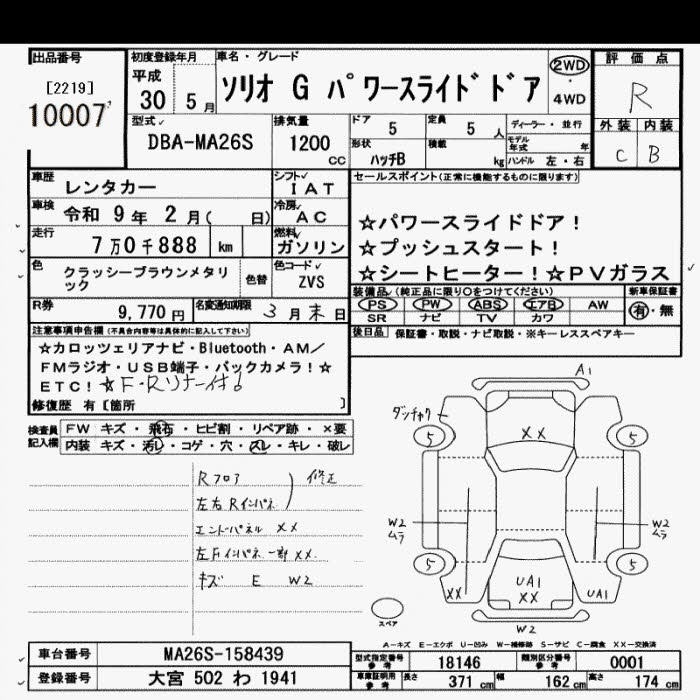 出品番号
[2219]
10007
初度登録年月
平成
30 5 月
車名・グレード
ソリオ G パワースライドドア
2WD
・
4WD
評価点
R
外装 内装
C B
型式
DBA-MA26S
排気量
1200
CC
ドア 5
定員 5 人
形状 ハッチB
積載 kg
ディーラー・並行
モデル年式 年
ハンドル 左・右
車歴 レンタカー
シフト IAT
車検 令和 9年 2月( 日)
冷房 AC
走行 7万0千888 km
燃料 ガソリン
色 クラッシーブラウンメタリック
色替
色コード ZVS
R券 9,770円
名変通知期限 3月末日
セールスポイント(正常に機能するものに限ります)
☆パワースライドドア!
☆プッシュスタート!
☆シートヒーター!☆PVガラス
装備品(純正品に限り○をつけてください)
PS PW ABS エアB AW
SR ナビ TV カワ
新車保証書
有・無
後日品 保証書・取説・ナビ取説・※キーレススペアキー
注意事項申告欄(不具合内容等は具体的に記入して下さい)
☆カロッツェリアナビ・Bluetooth・AM/
FMラジオ・USB端子・バックカメラ!☆
ETC!☆F・Rソナー付
修復歴 有[箇所 ]
検査員記入欄
FW キズ・飛石・ヒビ割・リペア跡・×要
内装 キズ・汚レ・コゲ・穴・スレ・キレ・破レ
Rフロア
左右Rインパネ
修正
エンドパネル XX
左Fインパネ一部XX.
キズ E W2
A1
ダッチャク
5 5
XX
W2
ムラ
W2
ムラ
5 5
XX
UA1
XX
UA1
W2
スペア
A-キズ E-エクボ U-凹み W-補修跡 S-サビ C-腐食 XX-交換済
車台番号 MA26S-158439
登録番号 大宮 502 わ 1941
型式指定番号 参考 18146
類別区分番号 参考 0001
車庫証明用 参考 長さ 371 cm 幅 162 cm 高さ 174 cm